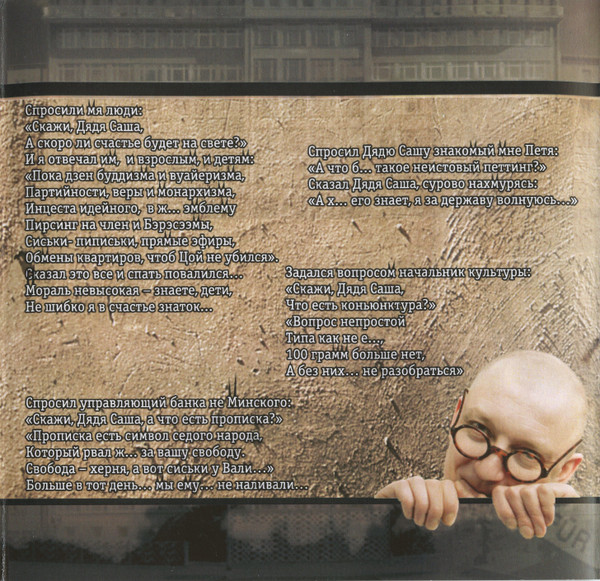 Спросили мя люди:
«Скажи, Дядя Саша,
А скоро ли счастье будет на свете?»
И я отвечал им, и взрослым, и детям:
«Пока дзен буддизма и вуайеризма,
Партийности, веры и монархизма,
Инцеста идейного, в ж... эмблему
Пирсинг на член и Бэрэсээмы,
Сиськи- пиписьки, прямые эфиры,
Обмены квартиров, чтоб Цой не убился».
Сказал это все и спать повалился...
Мораль невысокая – знаете, дети,
Не шибко я в счастье знаток...
Спросил управляющий банка не Минского:
«Скажи, Дядя Саша, а что есть прописка?»
«Прописка есть символ седого народа,
Который рвал ж... за вашу свободу.
Свобода – херня, а вот сиськи у Вали...»
Больше в тот день... мы ему... не наливали...
Спросил Дядю Сашу знакомый мне Петя:
«А что б... такое неистовый петтинг?»
Сказал Дядя Саша, сурово нахмурясь:
«А х... его знает, я за державу волнуюсь...»
Задался вопросом начальник культуры:
«Скажи, Дядя Саша,
Что есть коньюнктура?»
«Вопрос непростой
Типа как не е...,
100 грамм больше нет,
А без них... не разобраться»
FÜR